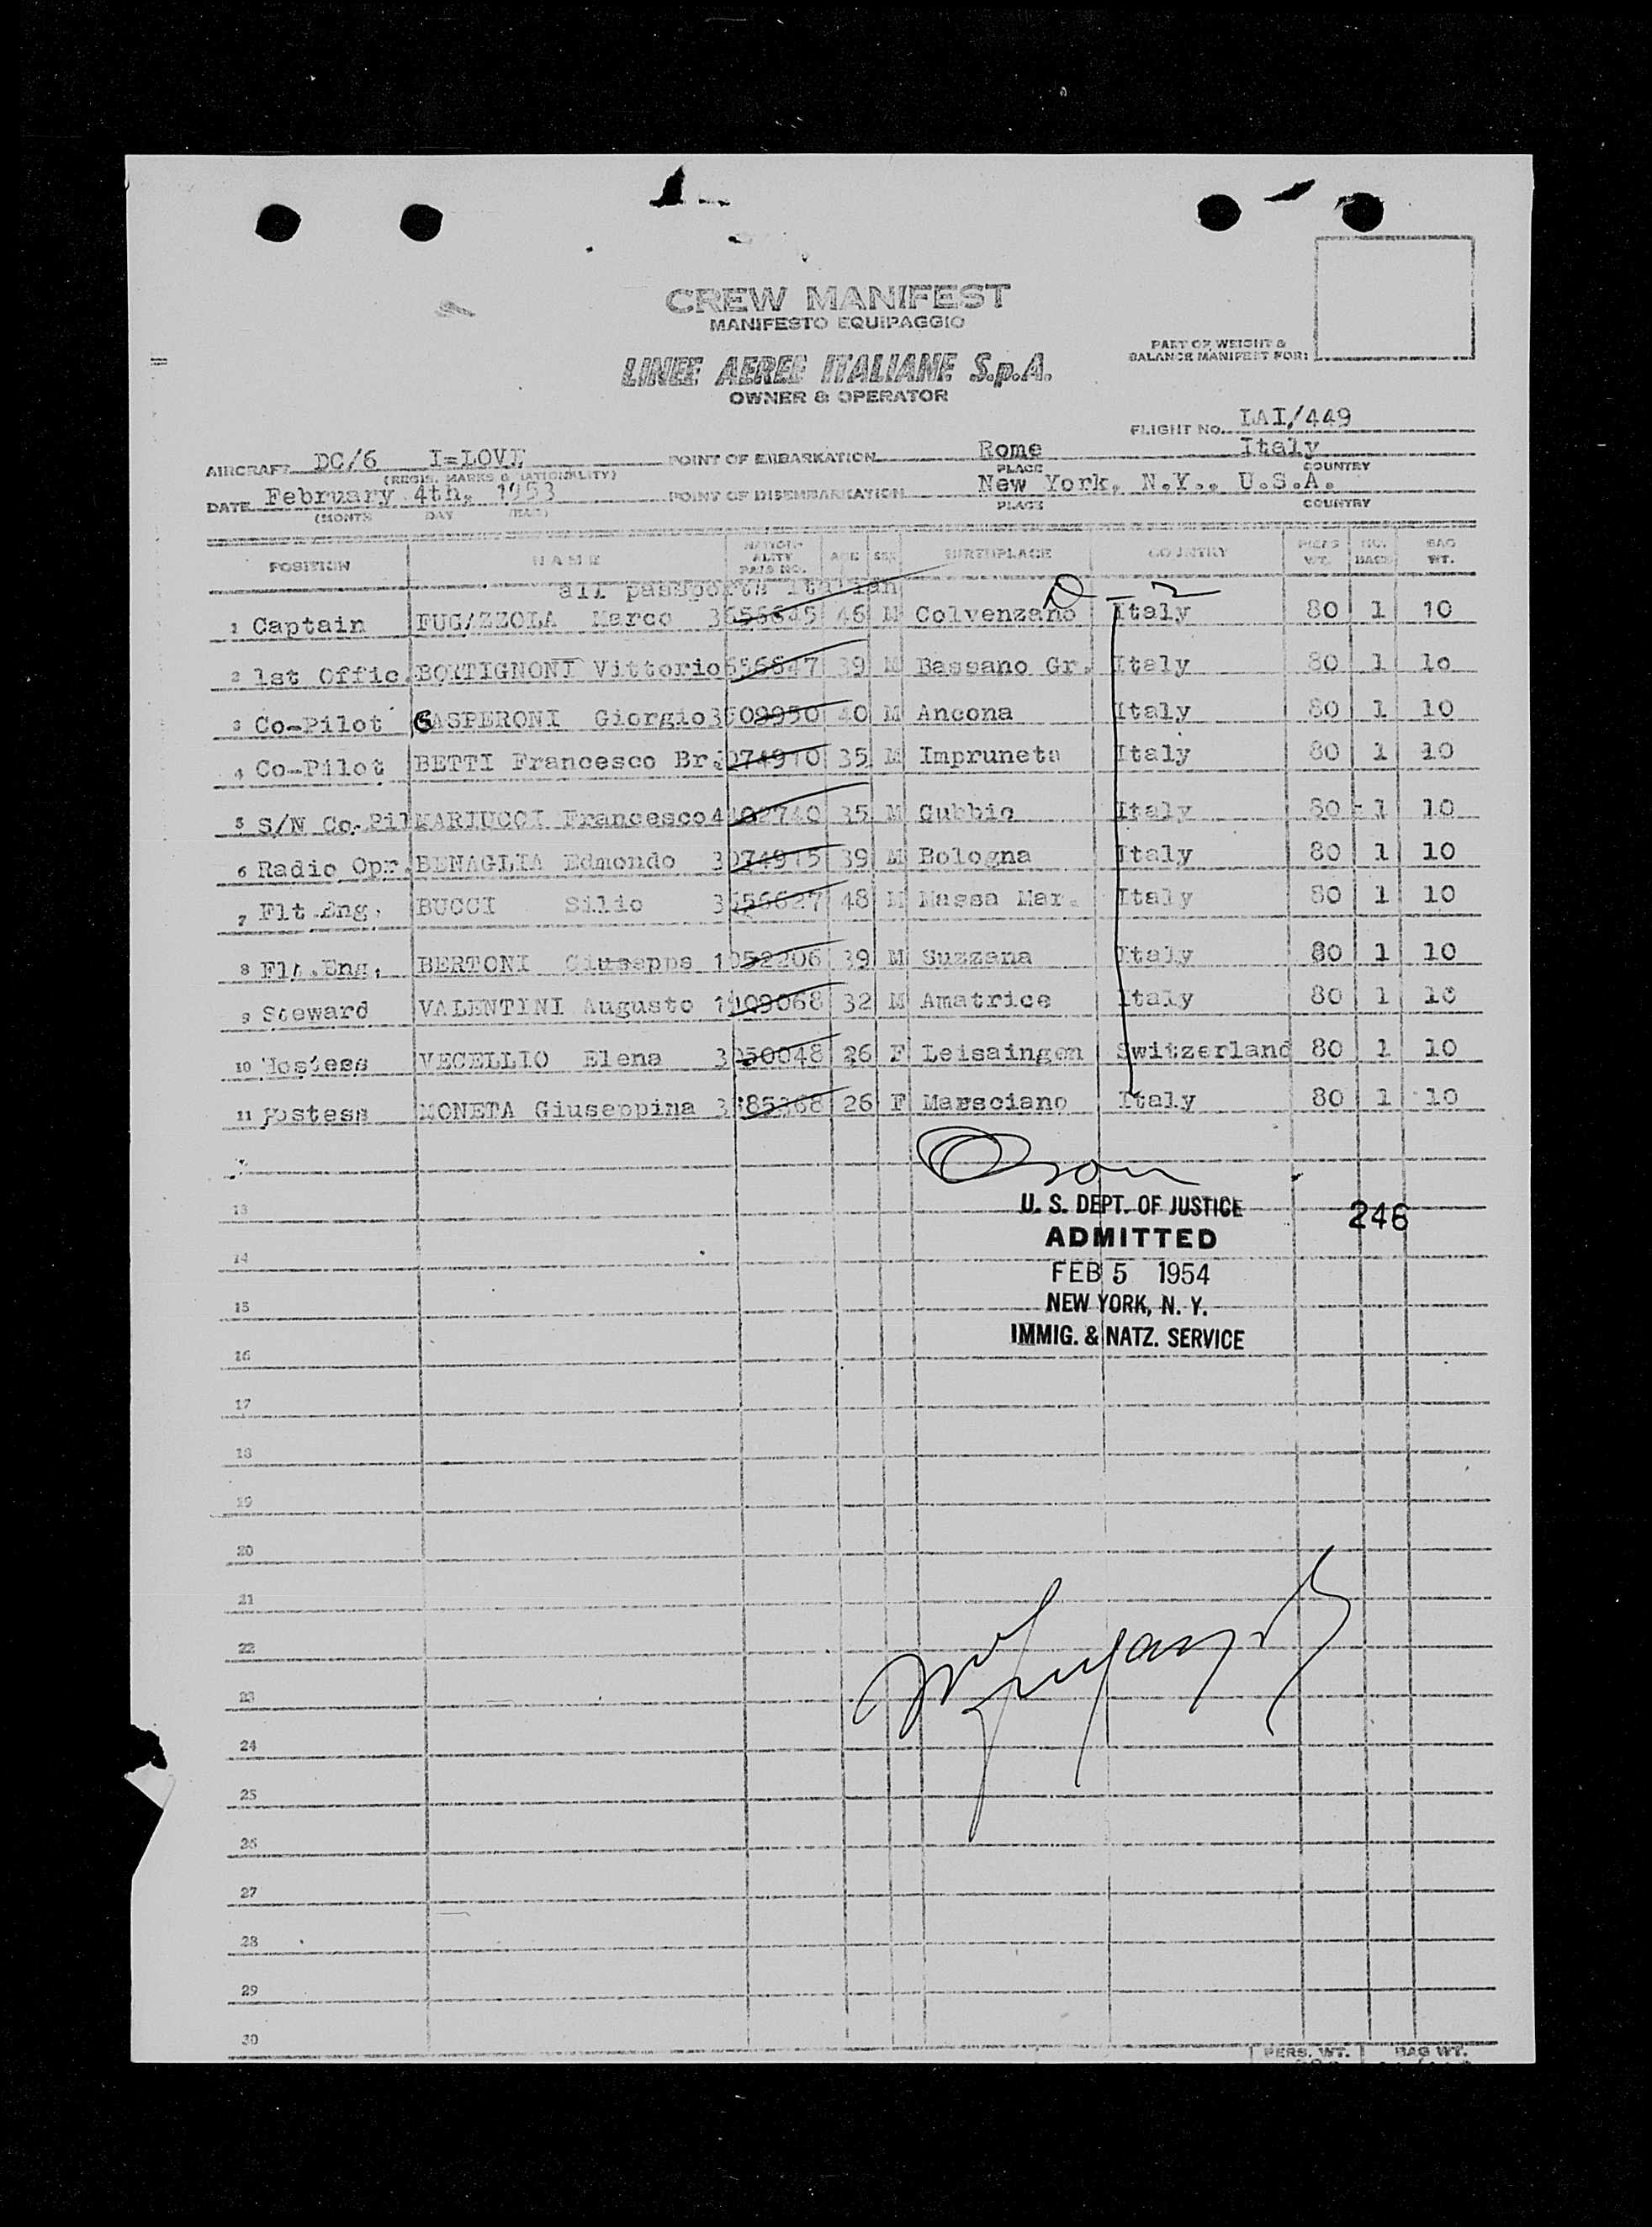 CREW MANIFEST
MANIFESTO EQUIPAGGIO
PART OF WEIGHT &
BALANCE MANIFEST FOR:
LINEE AEREE ITALIANE S.p.A.
OWNER & OPERATOR
FLIGHT NO. LAI/449
AIRCRAFT DC/6 I=LOVE POINT OF EMBARKATION Rome Italy
(REGIS. MARKS & NATIONALITY) PLACE COUNTRY
DATE February 4th, 1953 POINT OF DISEMBARKATION New York, N.Y., U.S.A.
(MONTH DAY YEAR) PLACE COUNTRY
POSITION NAME NATION-ALITY PASS NO. AGE SEX BIRTHPLACE COUNTRY PERS WT. NO. BAGS BAG WT.
all passports Italian
1 Captain FUGAZZOLA Marco 3656645 46 M Colvenzano Italy 80 1 10
2 1st Offic. BORTIGNONI Vittorio 39 M Bassano Gr. Italy 80 1 10
3 Co-Pilot GASPERONI Giorgio 40 M Ancona Italy 80 1 10
4 Co-Pilot BETTI Francesco Br. 35 M Impruneta Italy 80 1 10
5 S/N Co-Pil MARIUCCI Francesco 35 M Gubbio Italy 80 1 10
6 Radio Opr. BENAGLIA Edmondo 39 M Bologna Italy 80 1 10
7 Flt.Eng. BUCCI Silio 48 M Massa Mar. Italy 80 1 10
8 Flt.Eng. BERTONI Giuseppe 1052206 39 M Suzzana Italy 80 1 10
9 Steward VALENTINI Augusto 32 M Amatrice Italy 80 1 10
10 Hostess VECELLIO Elena 3050048 26 F Leisaingen Switzerland 80 1 10
11 Hostess MONETA Giuseppina 26 F Marsciano Italy 80 1 10
13
U. S. DEPT. OF JUSTICE
246
ADMITTED
14
FEB 5 1954
15
NEW YORK, N. Y.
IMMIG. & NATZ. SERVICE
16
17
18
19
20
21
22
23
24
25
26
27
28
29
30
PERS. WT. BAG WT.